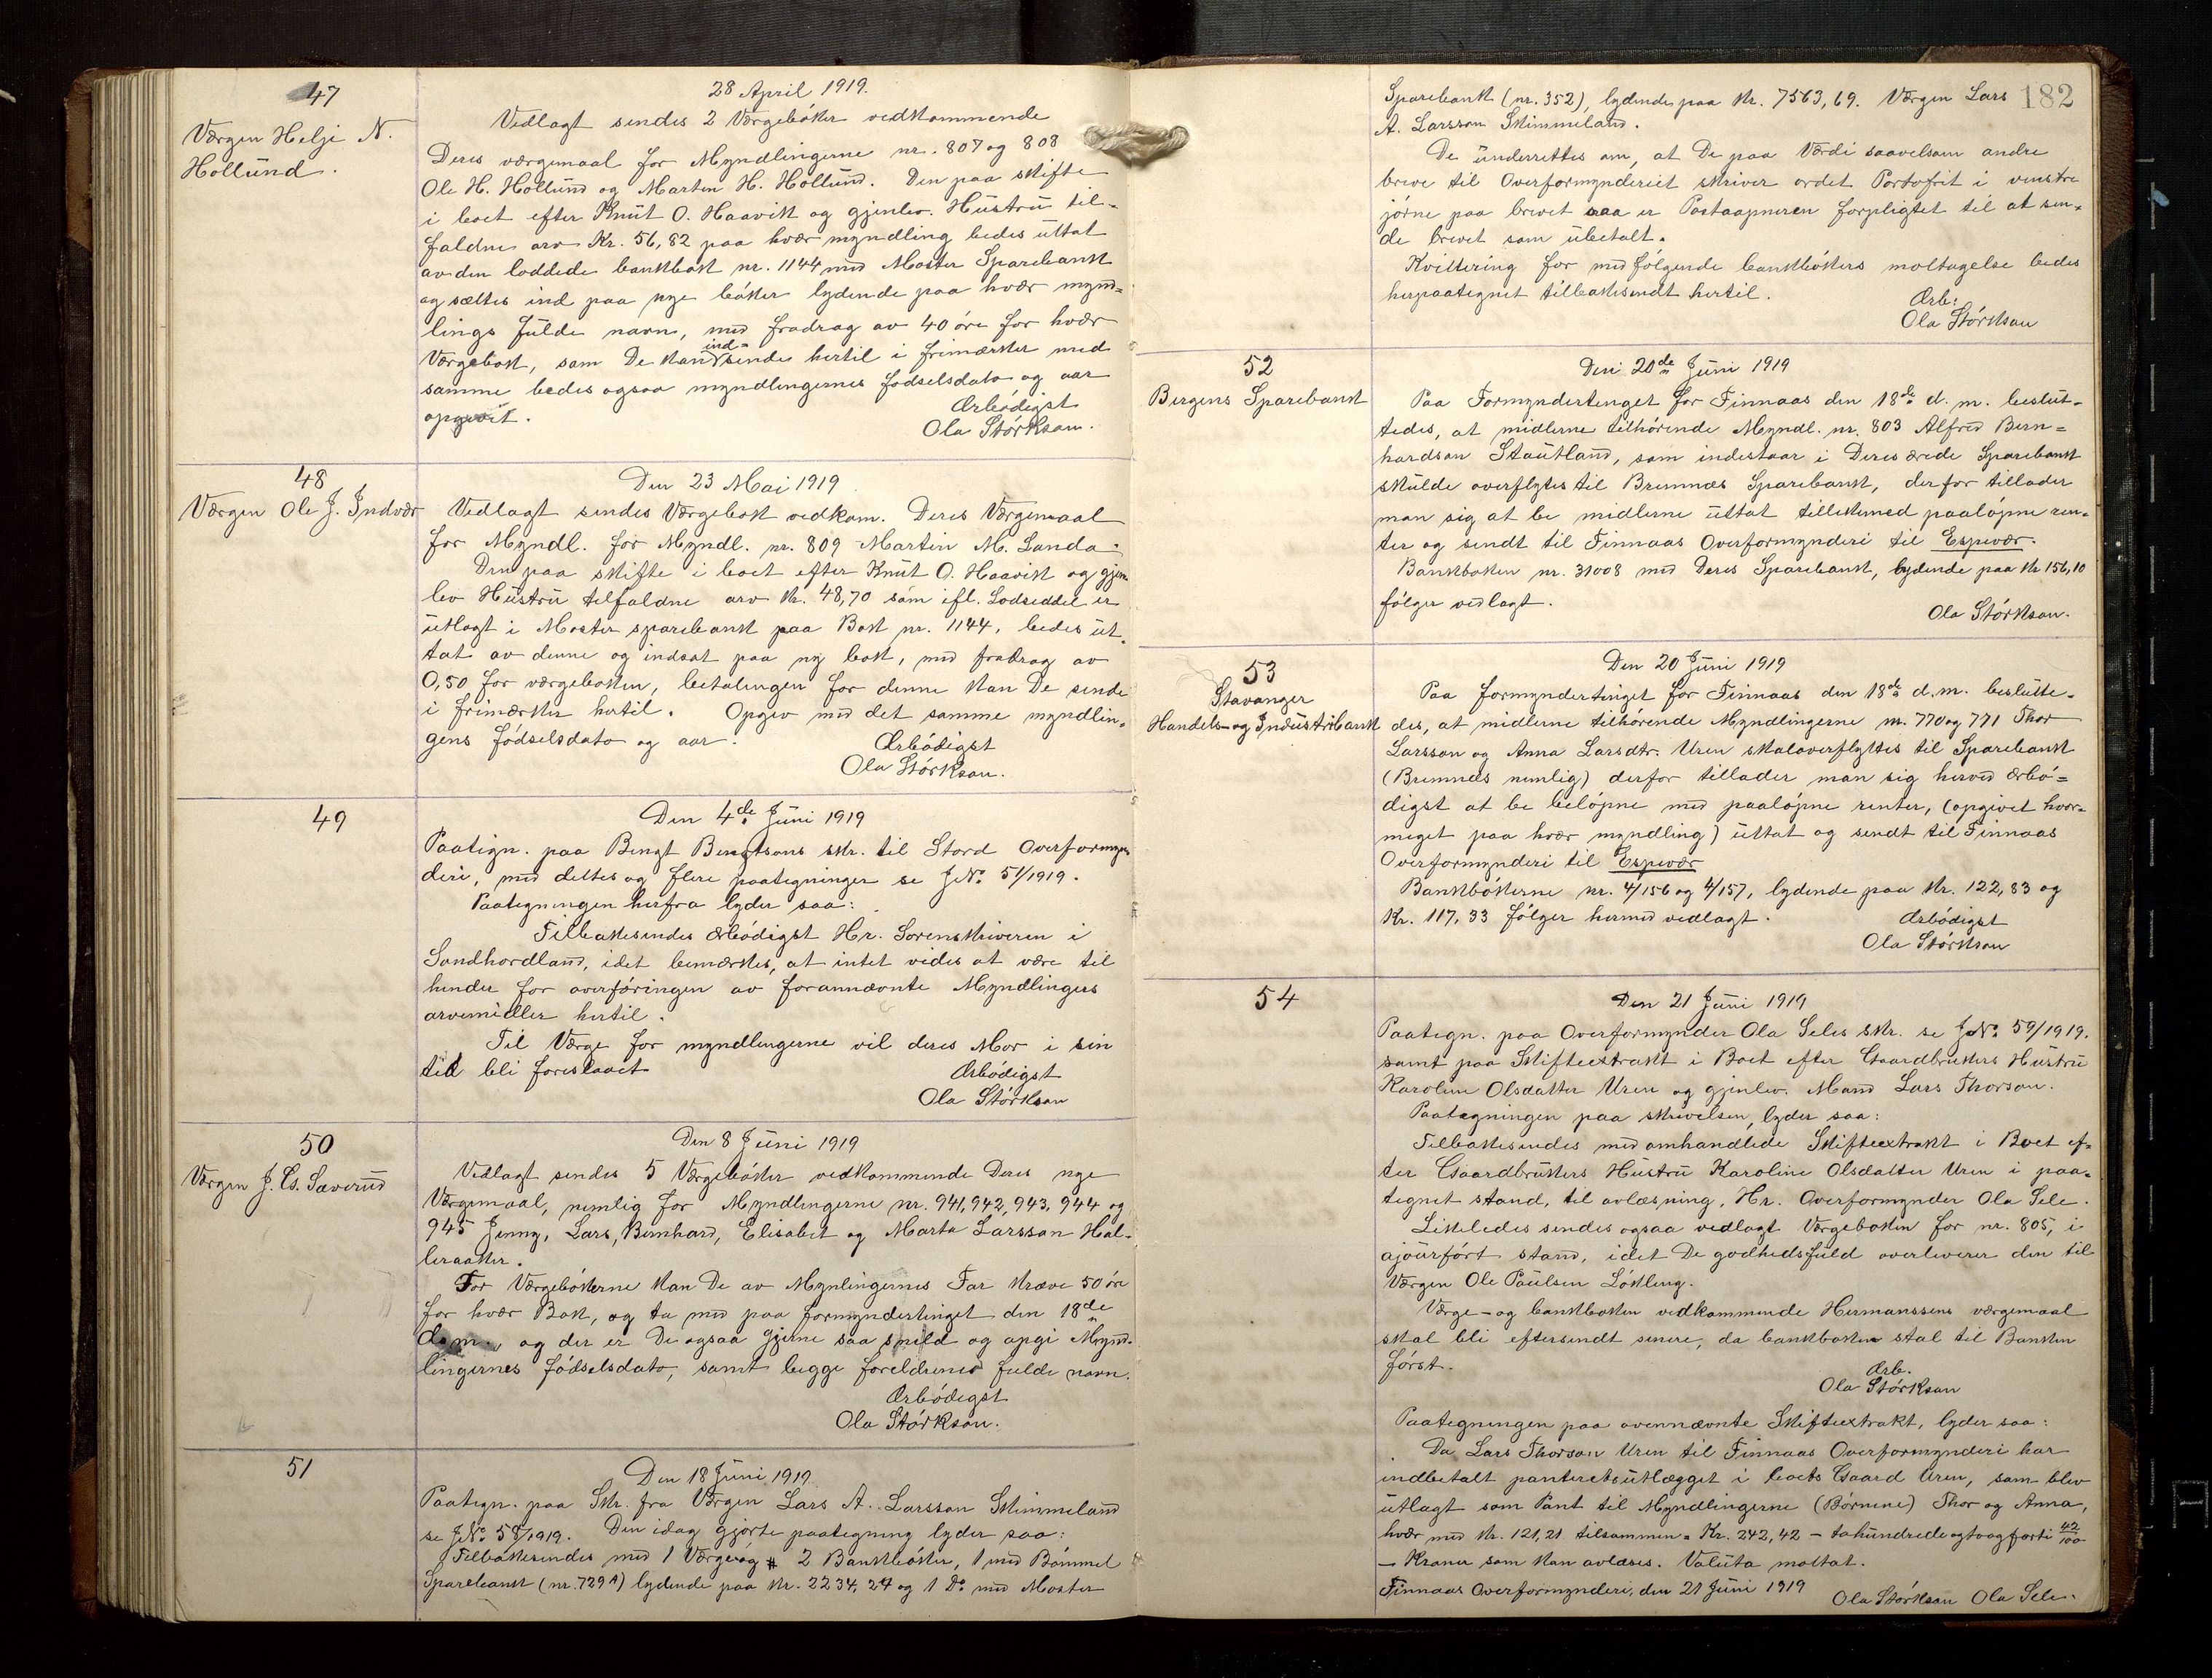 47
Værgen Helje N.
Hollund.
28 April 1919.
Vedlagt sendes 2 Værgebøker vedkommende
Deres værgemaal for Myndlingerne nr. 807 og 808
Ole H. Hollund og Marten H. Hollund. Den paa skifte
i boet efter Knut O. Haavik og gjenlev. Hustru til-
faldne arv Kr. 56,82 paa hvær myndling bedes uttat
av den loddede bankbok nr. 1144 med Moster Sparebank
og sættes ind paa nye bøker lydende paa hvær mynd-
lings fulde navn, med fradrag av 40 øre for hvær
Værgebok, som De kan ind-sende hertil i frimærker med
samme bedes ogsaa myndlingernes fødselsdato og aar
opgivit.
Ærbødigst
Ola Størkson.
48
Værgen Ole J. Indvær
Den 23 Mai 1919
Vedlagt sendes Værgebok vedkom. Deres Værgemaal
for Myndl. for Myndl. nr. 809 Martin M. Landa.
Den paa skifte i boet efter Knut O. Haavik og gjen-
lev Hustru tilfaldne arv Kr. 48,70 som ifl. Lodseddel er
utlagt i Moster sparebank paa Bok nr. 1144, bedes ut-
tat av denne og indsat paa ny bok, med fradrag av
0,50 for værgeboken, betalingen for denne kan De sende
i frimærker hertil. Opgiv med det samme myndlin-
gens fødselsdato og aar.
Ærbødigst
Ola Størkson.
49
Den 4de Juni 1919
Paategn. paa Bengt Bengtsons skr. til Stord Overformyn
deri, med dettes og flere paategninger se J.No. 51/1919.
Paategningen herfra lyder saa:
Tilbakesendes ærbødigst Hr. Sorenskriveren i
Søndhordland, idet bemærkes, at intet vides at være til
hinder for overføringen av forannævnte Myndlingers
arvemidler hertil.
Til Værge for myndlingerne vil deres Mor i sin
tid bli foreslaaet
Ærbødigst
Ola Størkson
50
Værgen J. Cs. Sæverud
Den 8 Juni 1919
Vedlagt sendes 5 Værgebøker vedkommende Deres nye
Værgemaal, nemlig for Myndlingerne nr. 941, 942, 943, 944 og
945 Jenny, Lars, Bernhard, Elisabet og Marta Larsson Hal-
leraaker.
For Værgebøkerne kan De av Mynlingernes Far kræve 50 øre
for hvær Bok, og ta med paa formyndertinget den 18de
d. m., og der er De ogsaa gjerne saa snild og opgi Mynd-
lingernes fødselsdato, samt begge foreldrenes fulde navn.
Ærbødigst
Ola Størkson.
51
Den 18 Juni 1919.
Paategn. paa Skr. fra Værgen Lars A. Larsson Skimmeland
se J.No. 58/1919. Den idag gjorte paategning lyder saa:
Tilbakesendes med 1 Værge og 2 Bankbøker, 1 med Bømmel
Sparebank (nr. 729 A) lydende paa Kr. 2234,24 og 1 Do. med Moster
182
Sparebank (nr. 352), lydende paa Kr. 7563,69. Værgen Lars
A. Larsson Skimmeland.
De underrettes om, at De paa Værdi saavelsom andre
breve til Overformynderiet skriver ordet Portofrit i venstre
jørne paa brevet saa er Postaapneren forpligtet til at sen-
de brevet som ubetalt.
Kvittering for medfølgende bankbøkers mottagelse bedes
herpaategnet tilbakesendt hertil.
Ærb:
Ola Størkson
52
Bergens Sparebank
Den 20de Juni 1919
Paa Formyndertinget for Finnaas den 18de d. m. beslut-
tedes, at midlerne tilhørende Myndl. nr. 803 Alfred Bern-
hardson Stautland, som indestaar i Deres ærede Sparebank
skulde overflytes til Bremnæs Sparebank, derfor tillader
man sig at be midlerne uttat tillikemed paaløpne ren-
ter og sendt til Finnaas Overformynderi til Espevær.
Bankboken nr. 31008 med Deres Sparebank, lydende paa Kr 156,10
følger vedlagt.
Ola Størkson.
53
Stavanger
Handels- og Industribank
Den 20 Juni 1919
Paa formyndertinget for Finnaas den 18de d.m. beslutte-
des, at midlerne tilhørende Myndlingerne nr. 770 og 771 Thor
Larsson og Anna Larsdtr. Uren skal overflyttes til Sparebank
(Bremnæs nemlig) derfor tillader man sig herved ærbø-
digst at be beløpne med paaløpne renter, (opgivet hvor-
meget paa hvær myndling) uttat og sendt til Finnaas
Overformynderi til Espevær
Bankbøkerne nr. 4/156 og 4/157, lydende paa Kr. 122,83 og
Kr. 117,33 følger hermed vedlagt.
Ærbødigst
Ola Størkson
54
Den 21 Juni 1919
Paategn. paa Overformynder Ola Seles skr. se J.No. 59/1919.
samt paa Skifteextrakt i Boet efter Gaardbrukers Hustru
Karoline Olsdatter Uren og gjenlev. Mand Lars Thorson.
Paategningen paa skrivelsen, lyder saa:
Tilbakesendes med omhandlede Skifteextrakt i Boet ef-
ter Gaardbrukers Hustru Karoline Olsdatter Uren i paa-
tegnet stand, til avlæsning, Hr. Overformynder Ola Sele.
Likeledes sendes ogsaa vedlagt Værgeboken for nr. 805, i
ajourført stand, idet De godhedsfuld overleverer den til
Værgen Ole Paulsen Løkling.
Værge- og bankboken vedkommende Hermanssens værgemaal
skal bli eftersendt senere, da bankboken skal til Banken
først.
Ærb.
Ola Størkson
Paategningen paa ovennævnte Skifteextrakt, lyder saa:
Da Lars Thorson Uren til Finnaas Overformynderi har
indbetalt panteretsutlægget i boets Gaard Uren, som blev
utlagt som Pant til Myndlingerne (Børnene) Thor og Anna,
hvær med Kr. 121,21 tilsammen = Kr. 242,42 - tohundrede ogtoogforti 42/100
- Kroner som kan avlæses. Valuta mottat.
Finnaas Overformynderi, den 21 Juni 1919
Ola Størkson Ola Sele.